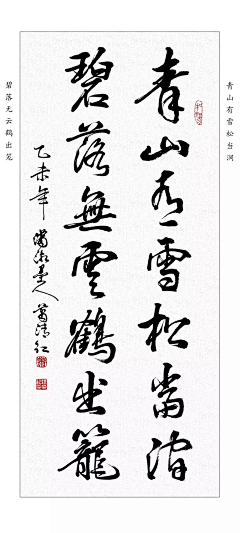 青山有雪松当涧
青山有雪松當澗
碧落無雲鶴出籠
乙未年
碧落无云鹤出笼